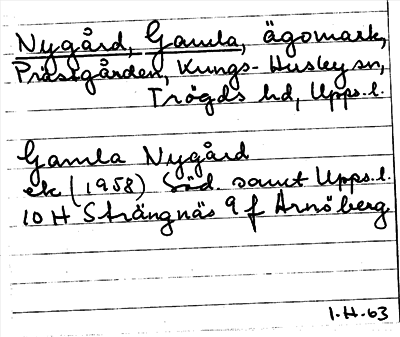 Nygård, Gamla, ägomark,
Prästgården, Kungs-Husby sn,
Trögds hd, Upps. l.
Gamla Nygård
ek (1958) Söd. samt Upps. l.
10 H Strängnäs 9 f Arnöberg
1.H.63